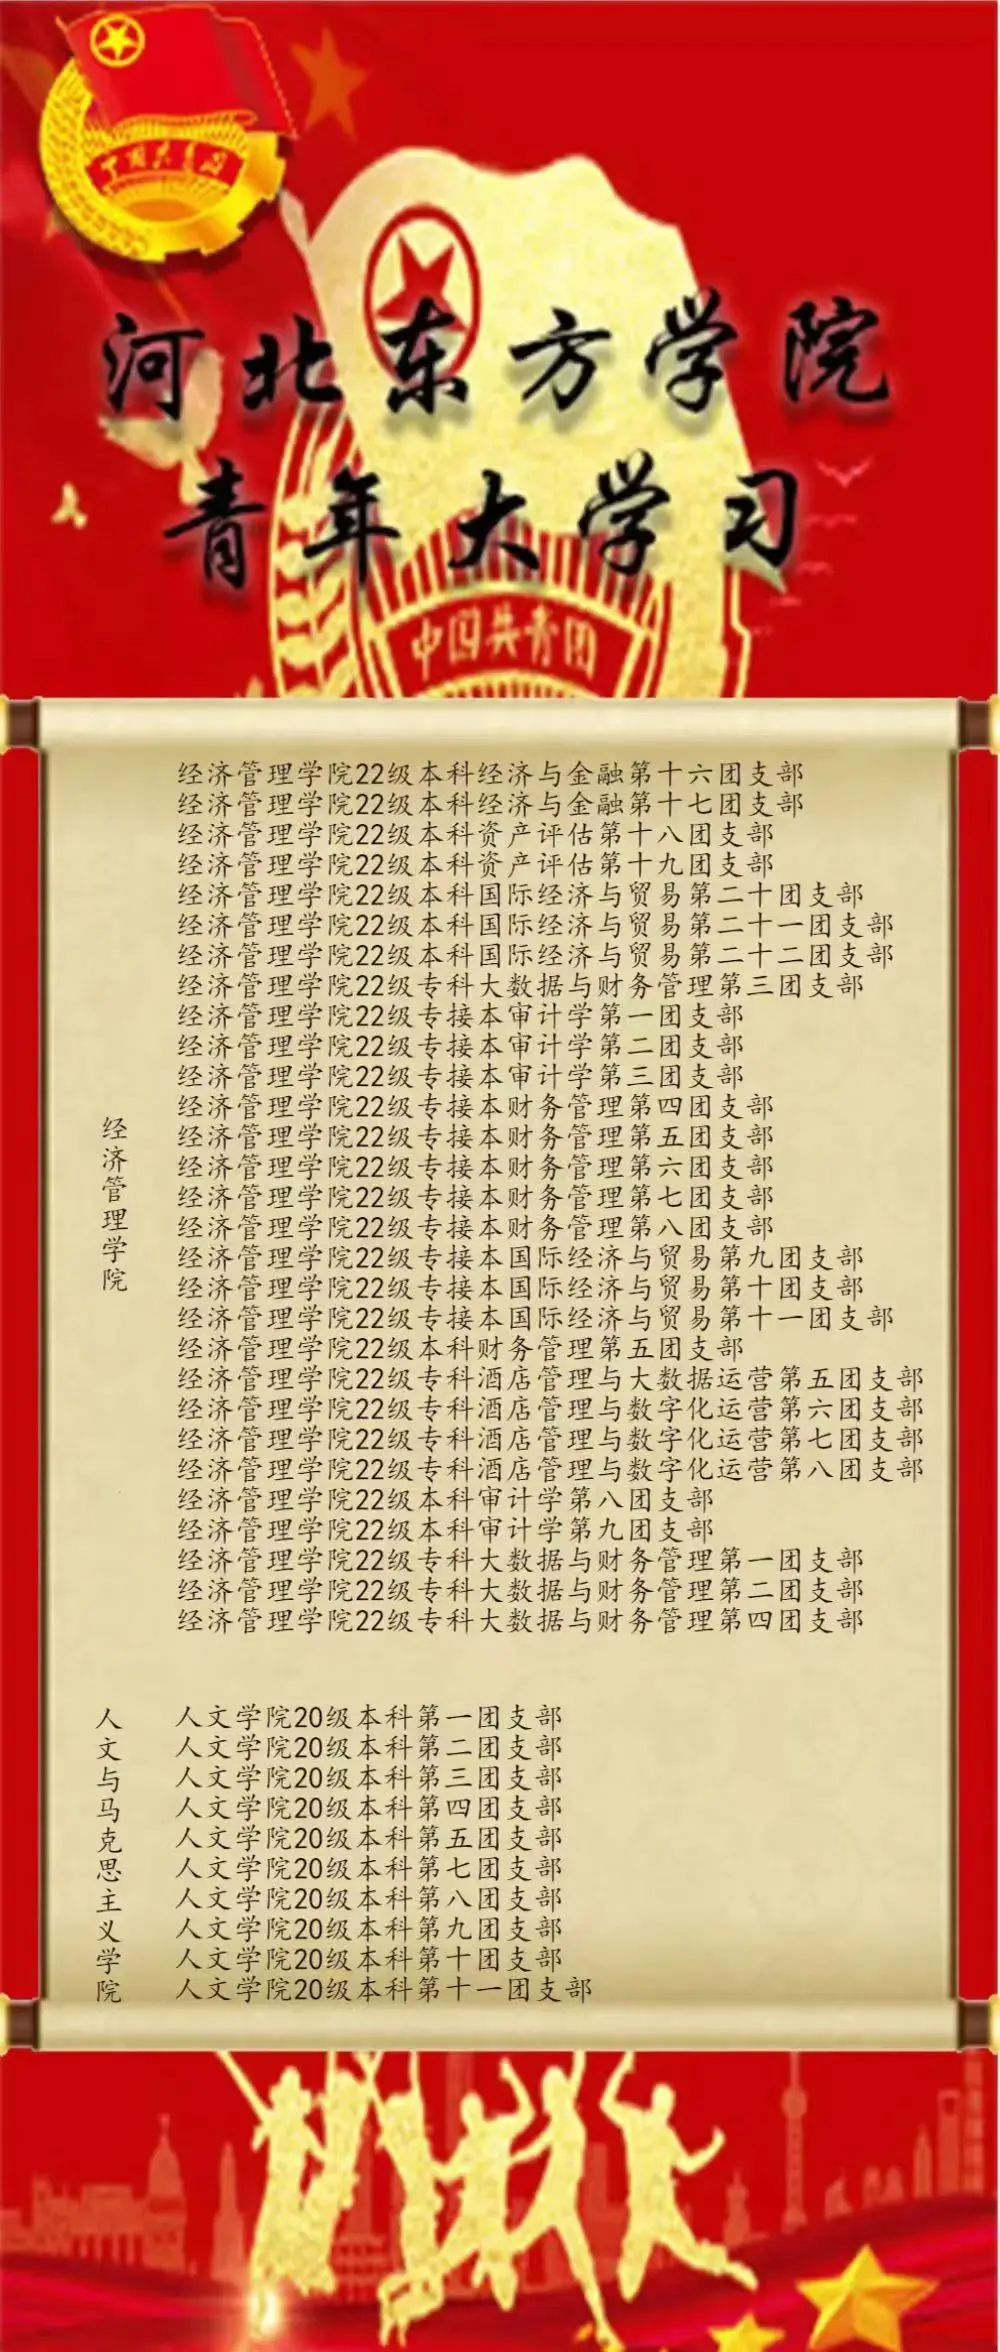 中国共青团
河北东方学院
青年大学习
中国共青团
经济管理学院
经济管理学院22级本科经济与金融第十六团支部
经济管理学院22级本科经济与金融第十七团支部
经济管理学院22级本科资产评估第十八团支部
经济管理学院22级本科资产评估第十九团支部
经济管理学院22级本科国际经济与贸易第二十团支部
经济管理学院22级本科国际经济与贸易第二十一团支部
经济管理学院22级本科国际经济与贸易第二十二团支部
经济管理学院22级专科大数据与财务管理第三团支部
经济管理学院22级专接本审计学第一团支部
经济管理学院22级专接本审计学第二团支部
经济管理学院22级专接本审计学第三团支部
经济管理学院22级专接本财务管理第四团支部
经济管理学院22级专接本财务管理第五团支部
经济管理学院22级专接本财务管理第六团支部
经济管理学院22级专接本财务管理第七团支部
经济管理学院22级专接本财务管理第八团支部
经济管理学院22级专接本国际经济与贸易第九团支部
经济管理学院22级专接本国际经济与贸易第十团支部
经济管理学院22级专接本国际经济与贸易第十一团支部
经济管理学院22级本科财务管理第五团支部
经济管理学院22级专科酒店管理与大数据运营第五团支部
经济管理学院22级专科酒店管理与数字化运营第六团支部
经济管理学院22级专科酒店管理与数字化运营第七团支部
经济管理学院22级专科酒店管理与数字化运营第八团支部
经济管理学院22级本科审计学第八团支部
经济管理学院22级本科审计学第九团支部
经济管理学院22级专科大数据与财务管理第一团支部
经济管理学院22级专科大数据与财务管理第二团支部
经济管理学院22级专科大数据与财务管理第四团支部
人文与马克思主义学院
人文学院20级本科第一团支部
人文学院20级本科第二团支部
人文学院20级本科第三团支部
人文学院20级本科第四团支部
人文学院20级本科第五团支部
人文学院20级本科第七团支部
人文学院20级本科第八团支部
人文学院20级本科第九团支部
人文学院20级本科第十团支部
人文学院20级本科第十一团支部